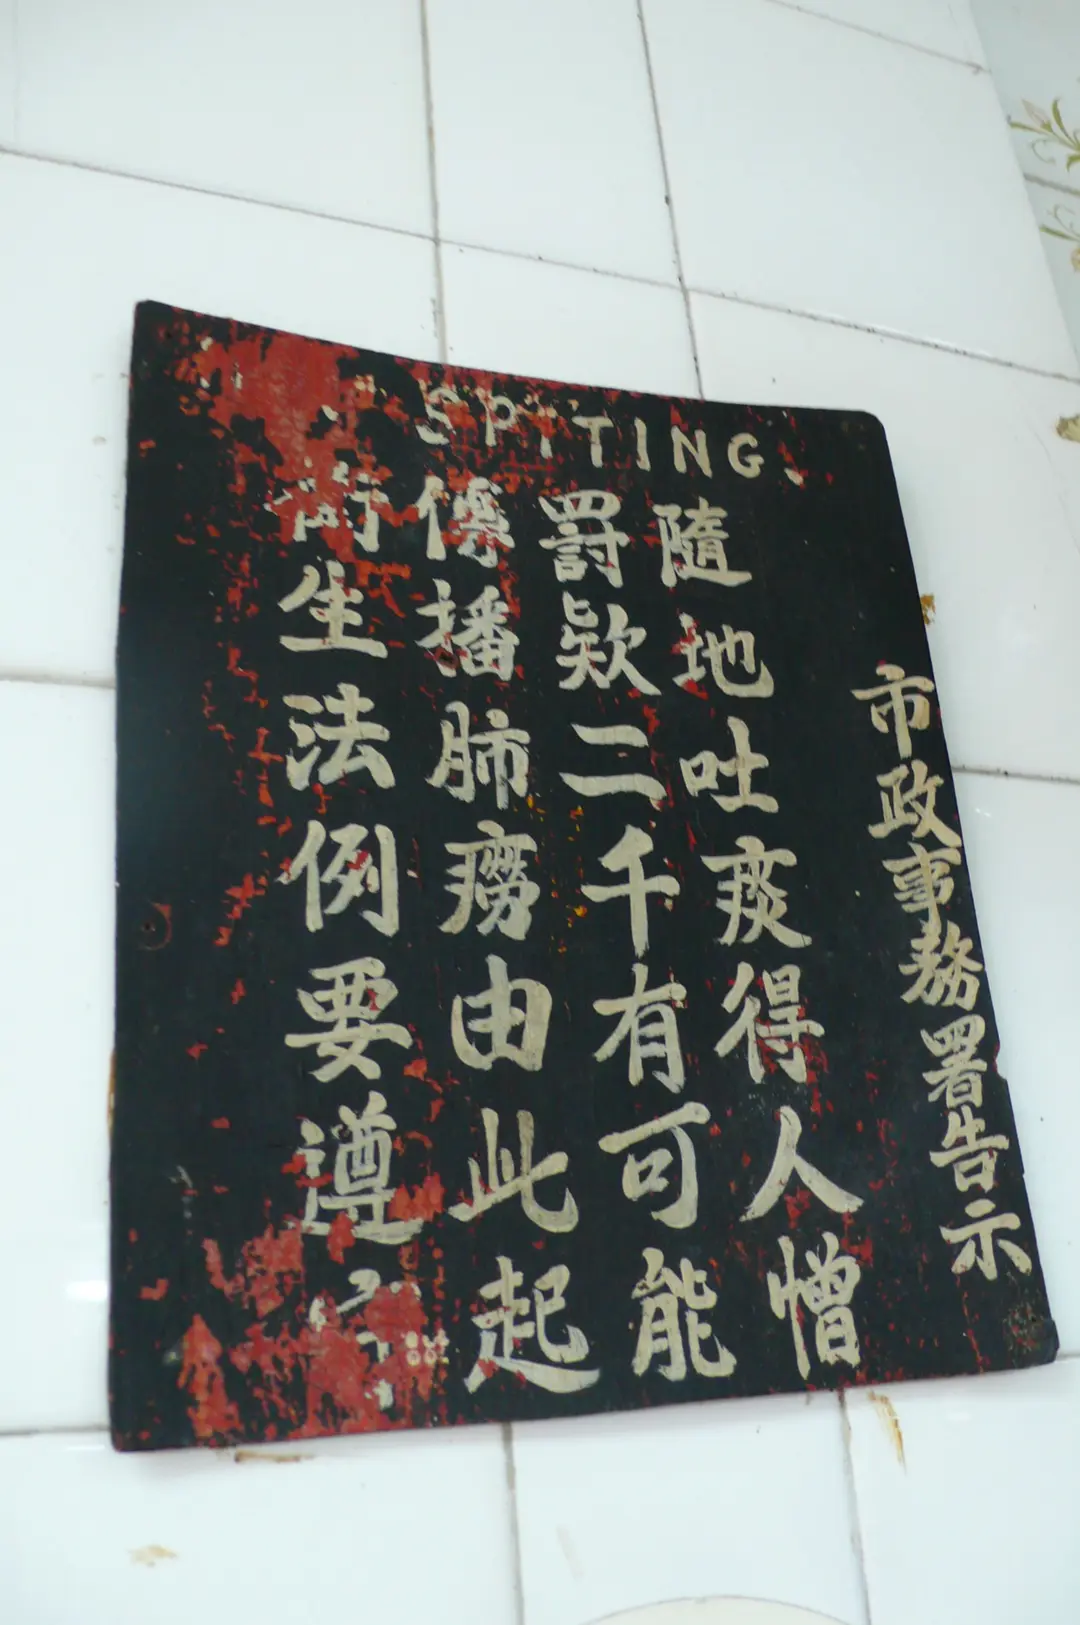 SPITTING、
市政事務署告示
隨地吐痰得人憎
罰欵二千有可能
傳播肺癆由此起
衛生法例要遵守